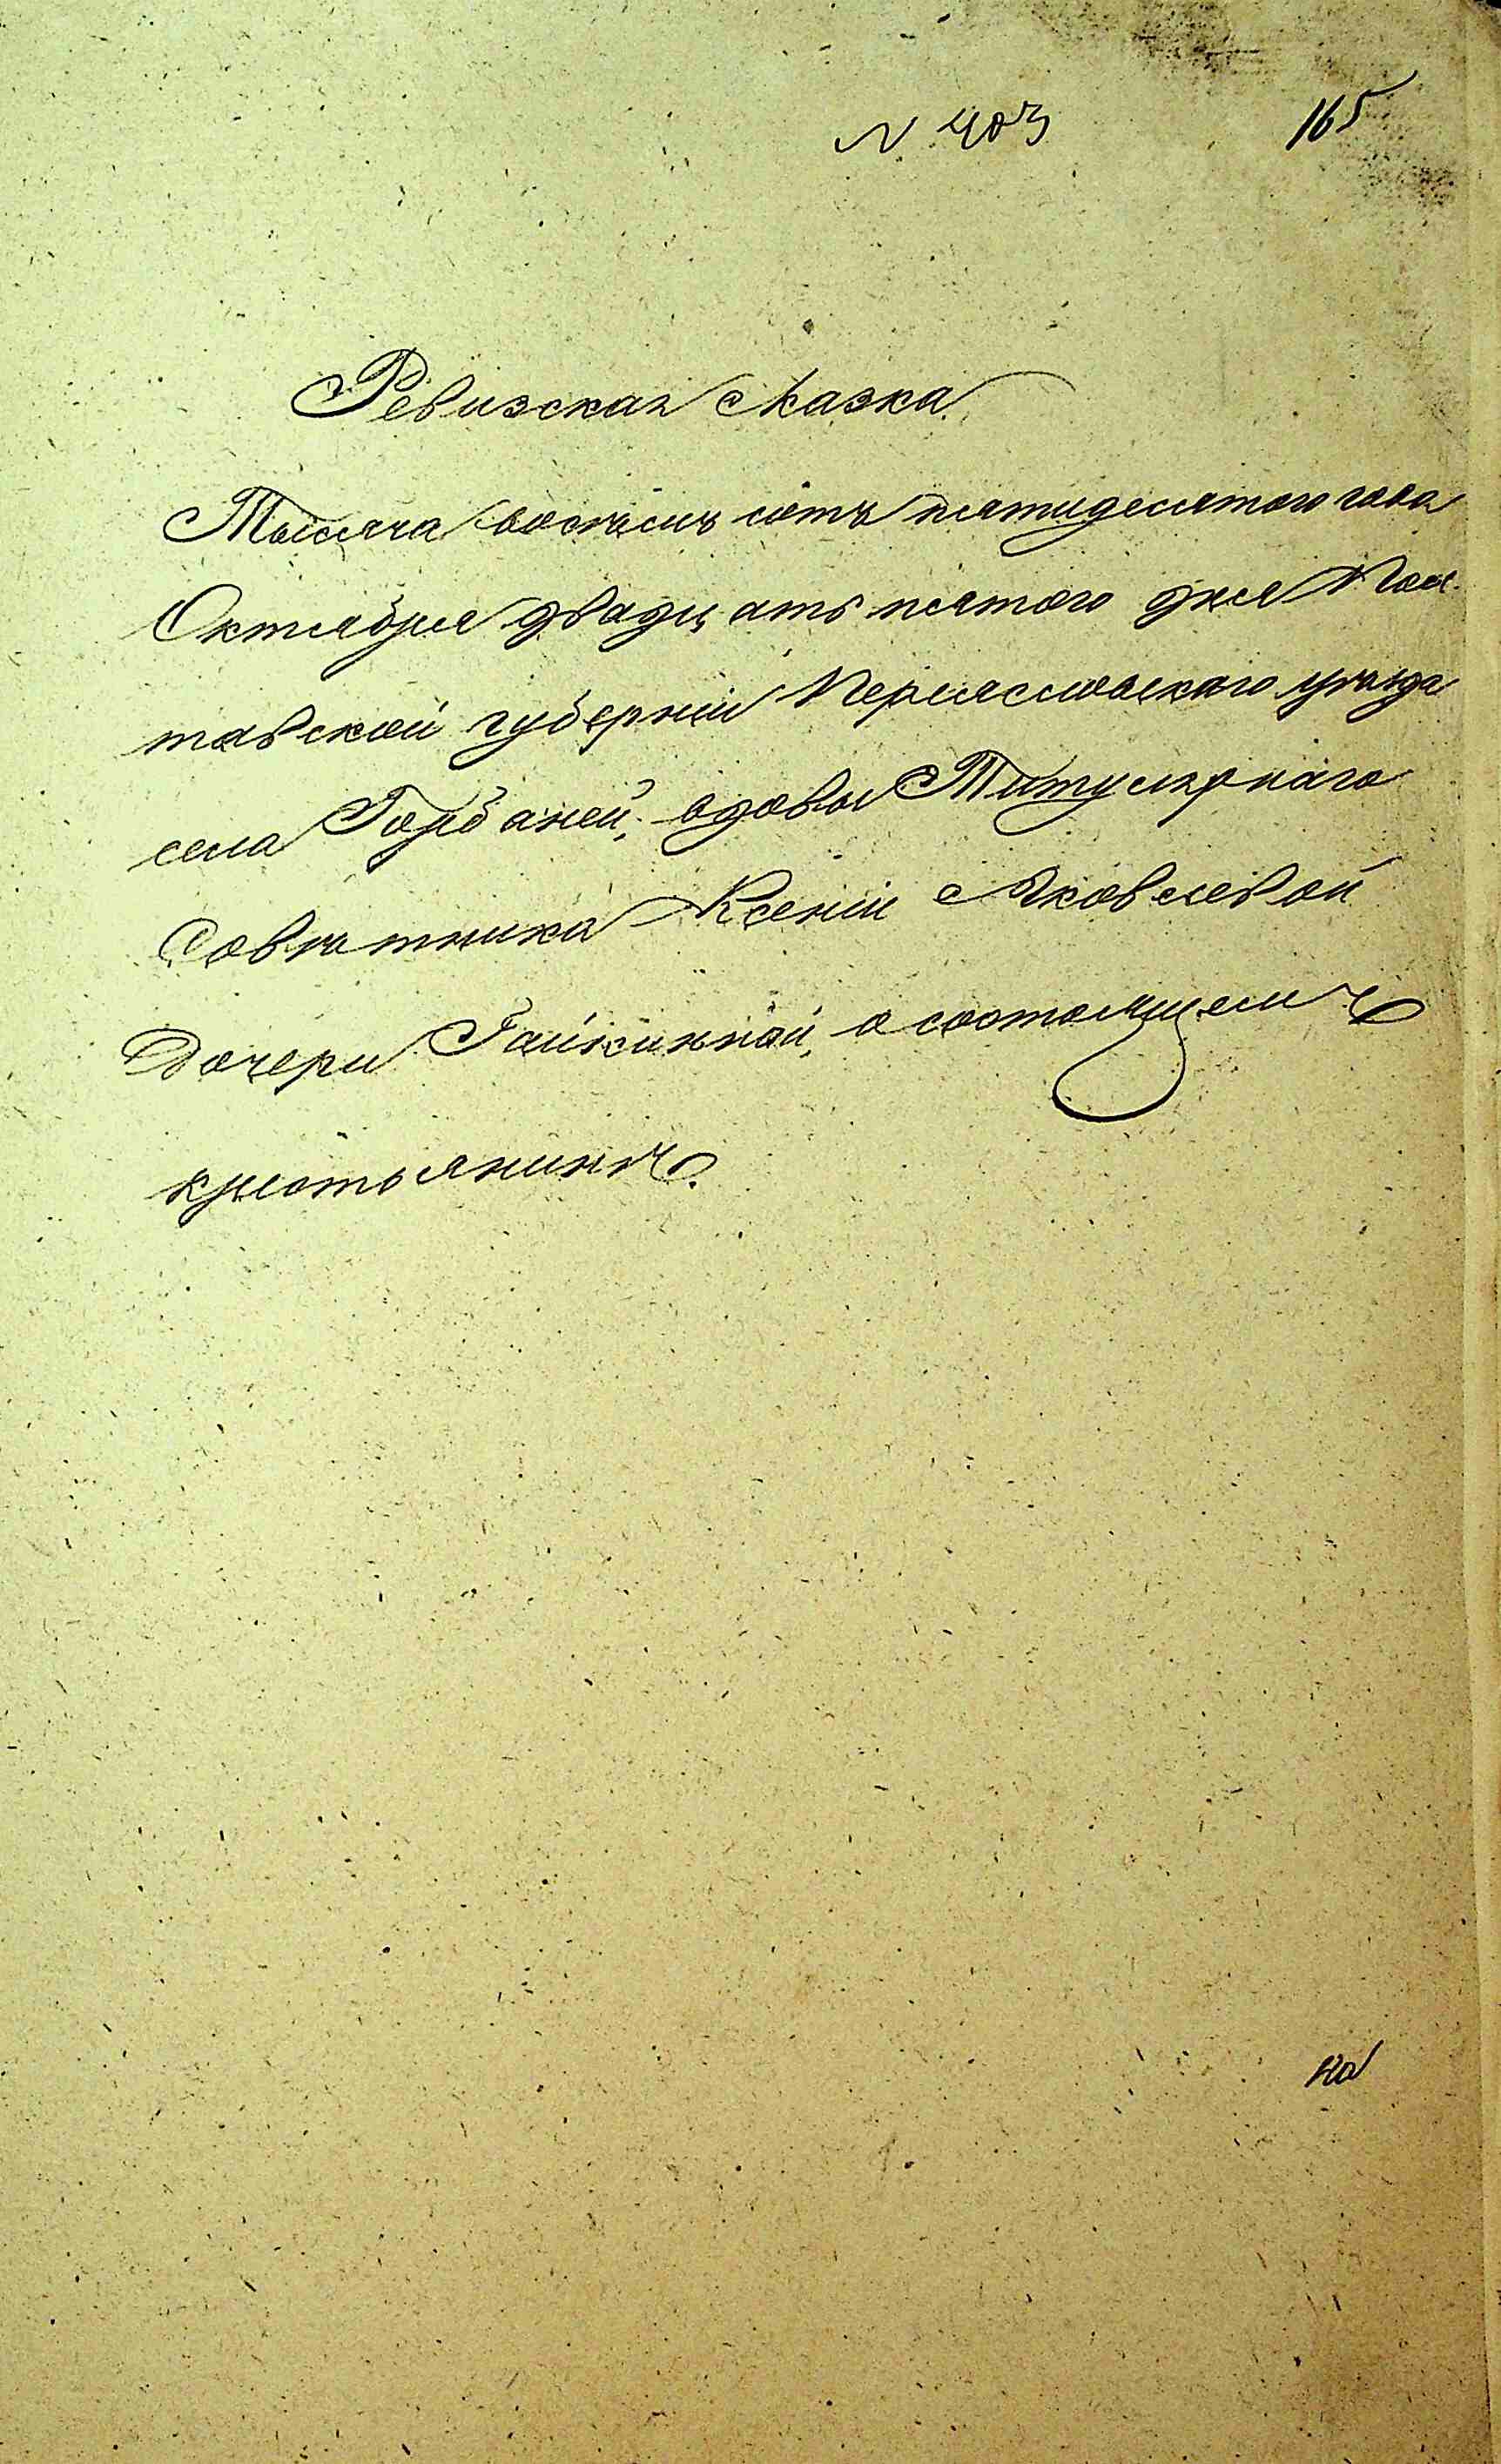 N 403
165
Ревизская сказка
Тысяча восемь сотъ пятидесятого года
Октября двадцать пятого дня Пол-
тавской губерніи Переясловского уѣзда
села Горбаней, вдовы Титулярнаго
Совѣтника Ксеніи Яковлевой
Дочери о состоящем
крестьянинѣ.
на